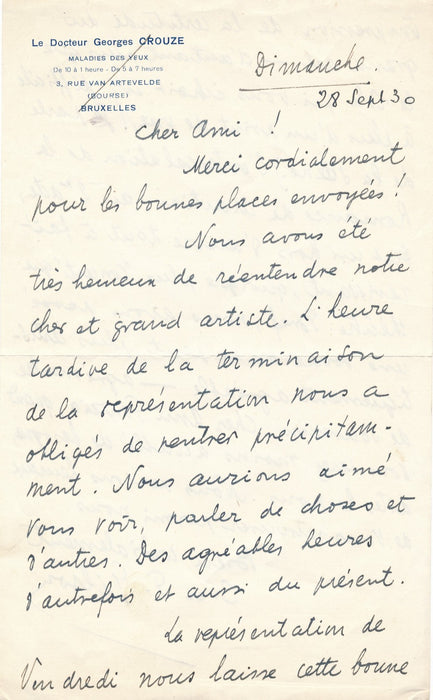 Le Docteur Georges CROUZE
MALADIES DES YEUX
De 10 à 1 heure - De 5 à 7 heures
3, RUE VAN ARTEVELDE
(BOURSE)
BRUXELLES
Dimanche.
28 Sept 30
Cher Ami !
Merci cordialement
pour les bonnes places envoyées !
Nous avons été
très heureux de réentendre notre
cher et grand artiste. L'heure
tardive de la terminaison
de la représentation nous a
obligés de rentrer précipitam-
ment. Nous aurions aimé
vous voir, parler de choses et
d'autres. Des agréables heures
d'autrefois et aussi du présent.
La représentation de
Vendredi nous laisse cette bonne